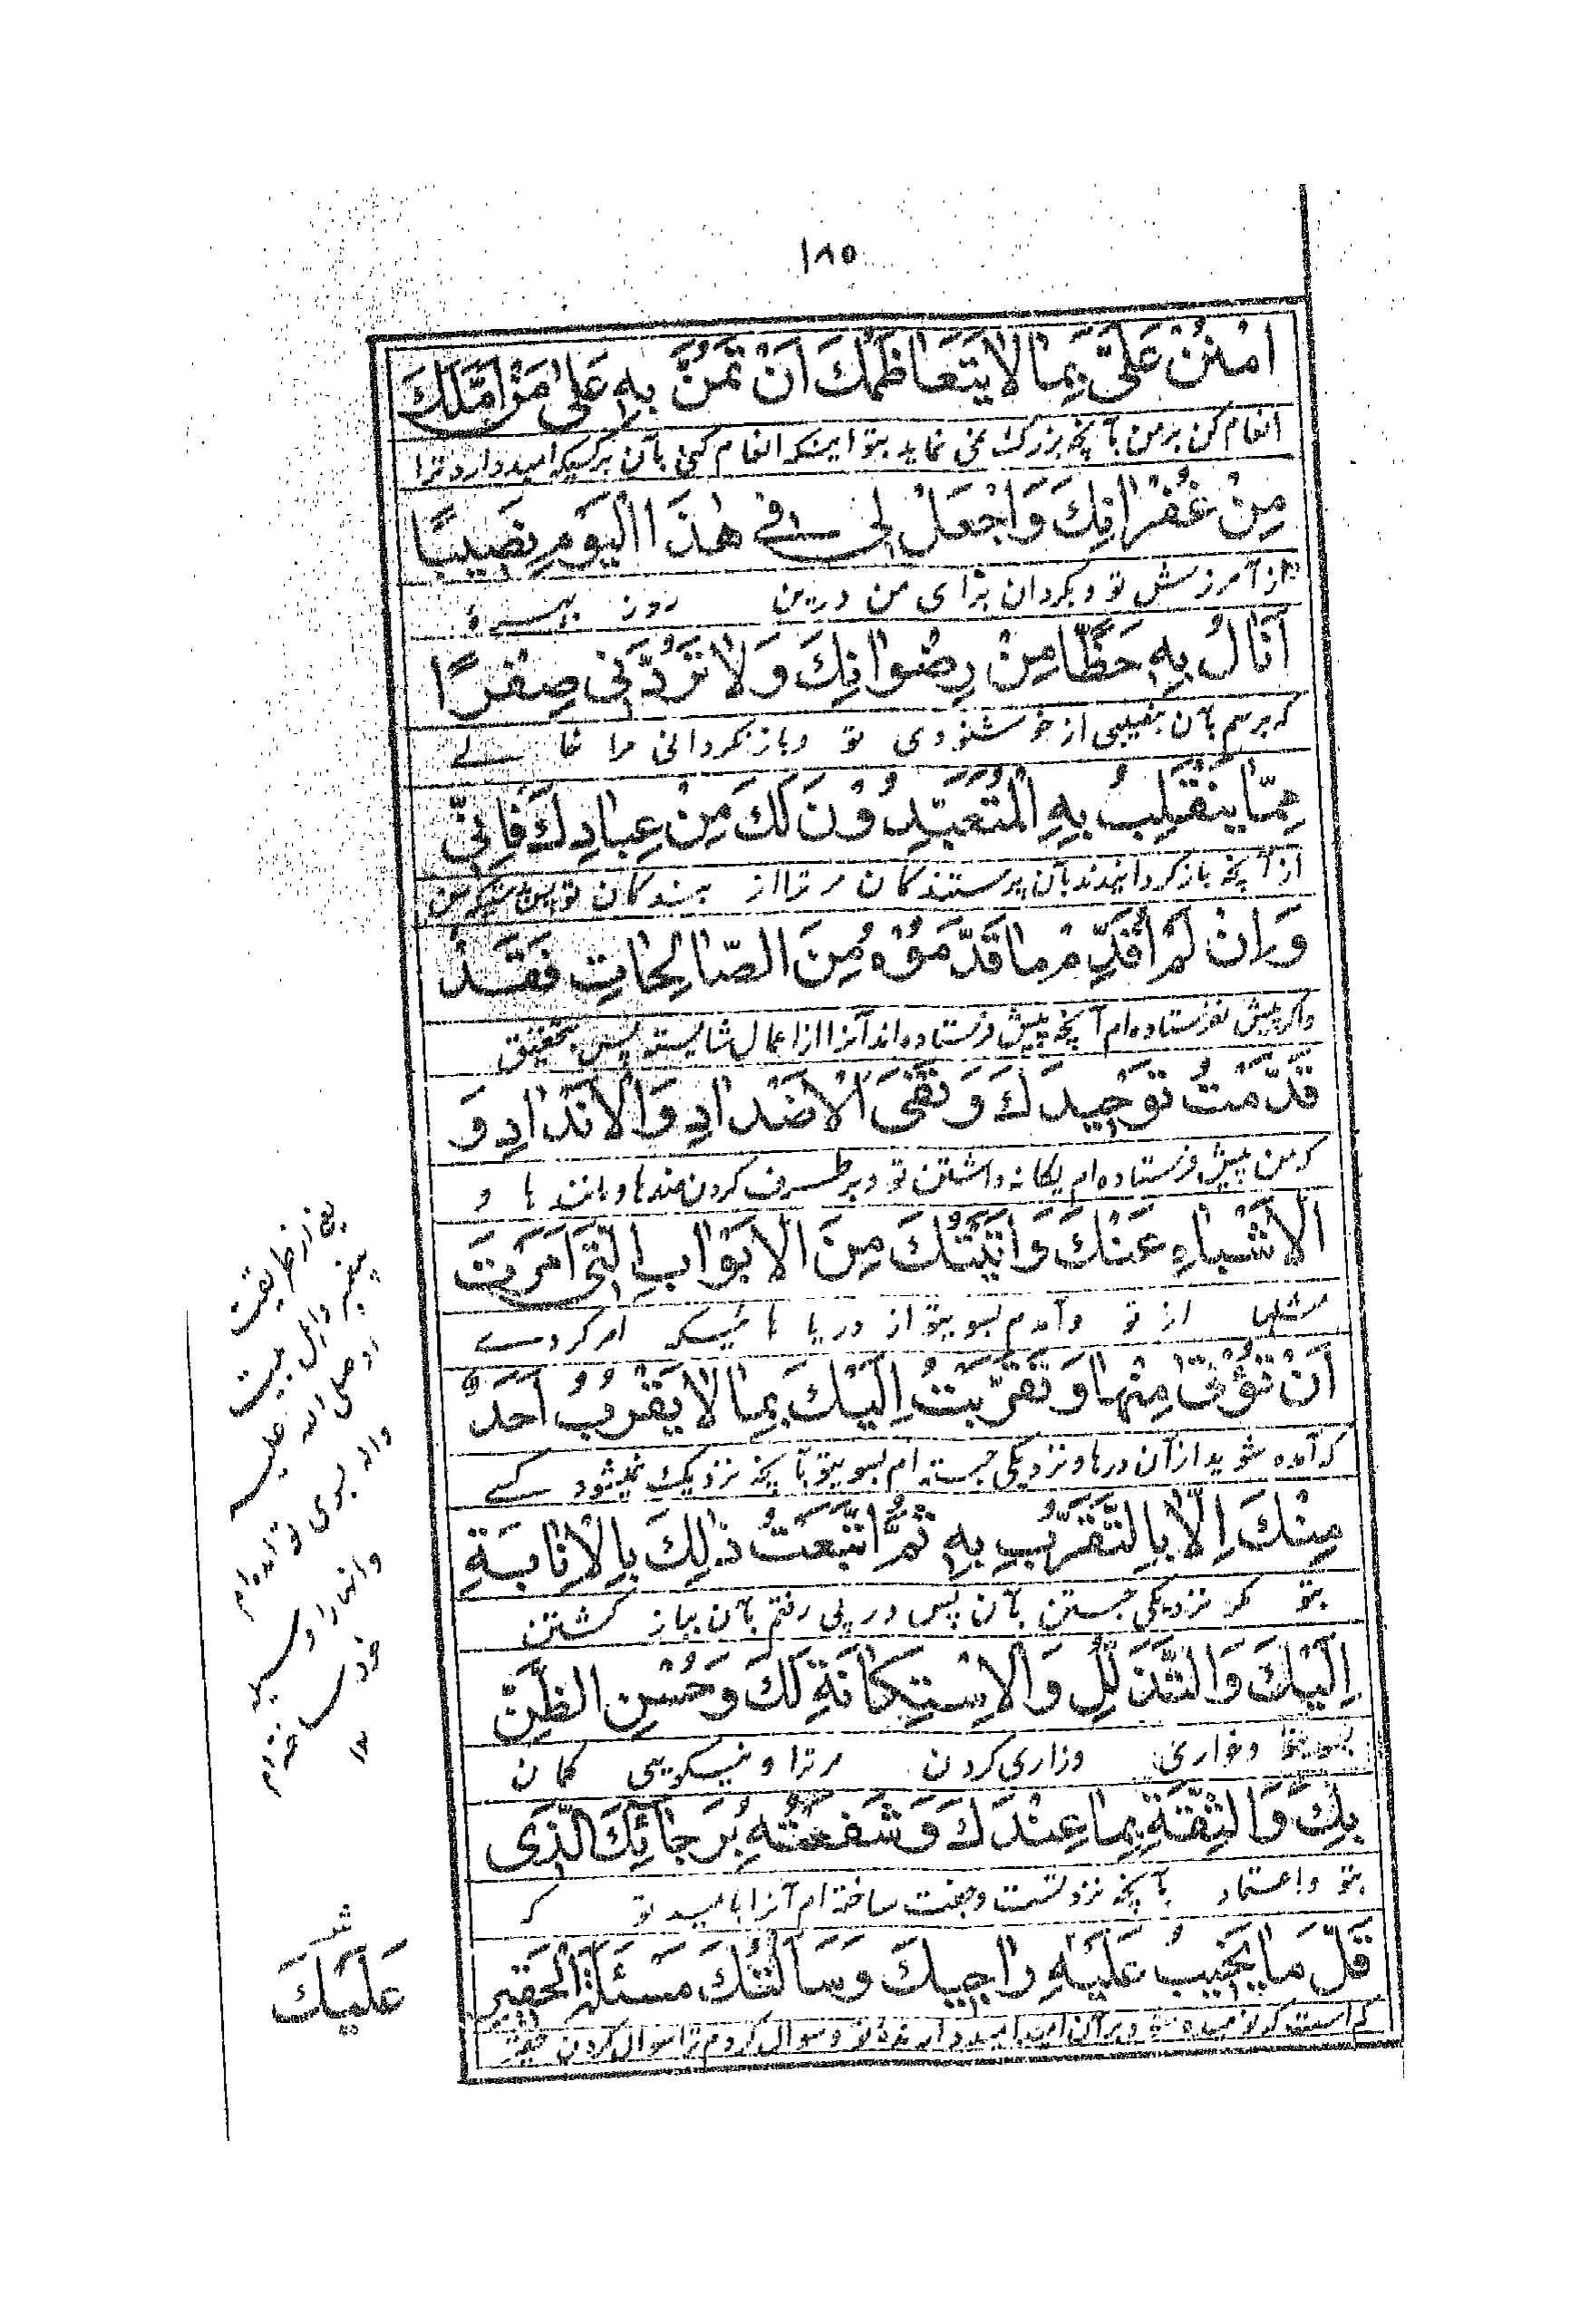 ۱۸۵
امْنُنْ عَلَىَّ بِمٰا لاٰ يَتَعٰاظَمُكَ اَنْ تَمُنَّ بِهِ عَلىٰ مَنْ اَمَّلَكَ
انعام کن بر من بآنچه بزرگ نمی نماید بتو اینکه انعام کنی بآن بر کسیکه امید دارد ترا
مِنْ غُفْرٰانِكَ وَاجْعَلْ لى فى هٰذَا الْيَوْمِ نَصيبًا
از آمرزش تو و بگردان برای من درین روز بهره
اَنٰالُ بِهِ حَظًّا مِنْ رِضْوٰانِكَ وَلاٰ تَرُدَّنى صِفْرًا
که برسم بآن بنصیبی از خوشنودی تو و باز نگردانی مرا خالی
مِمّٰا يَنْقَلِبُ بِهِ الْمُتَعَبِّدُوْنَ لَكَ مِنْ عِبٰادِكَ فَاِنّى
از آنچه باز گردانیدند بآن پرستندکان مر ترا از بندکان تو
وَاِنْ لَمْ اُقَدِّمْ مٰا قَدَّمُوْهُ مِنَ الصّٰالِحٰاتِ فَقَدْ
و اکر پیش نفرستاده ام آنچه پیش فرستاده اند آنرا از اعمال شایسته پس بتحقیق
قَدَّمْتُ تَوْحيدَكَ وَنَفْىَ الْاَضْدٰادِ وَالْاَنْدٰادِ وَ
که من پیش فرستاده ام یکانه داشتن تو و بر طرف کردن ضدها و مانندها و
الْاَشْبٰاهِ عَنْكَ وَاَتَيْتُكَ مِنَ الْاَبْوٰابِ الَّتى اَمَرْتَ
مثلها از تو و آمدم بسوی تو از دریا ئیکه امر کردی
اَنْ تُؤْتىٰ مِنْهٰا وَتَقَرَّبْتُ اِلَيْكَ بِمٰا لاٰ يَقْرُبُ اَحَدٌ
که آمده شوید از آن درها و نزدیکی جسته ام بسوی تو بآنچه نزدیک نمیشود کسی
مِنْكَ اِلاّٰ بِالتَّقَرُّبِ بِهِ ثُمَّ اَتْبَعْتُ ذٰلِكَ بِالْاِنٰابَةِ
بتو مکر نزدیکی جستن بآن پس در پی رفتم بآن بباز کشتن
اِلَيْكَ وَالتَّذَلُّلِ وَالْاِسْتِكٰانَةِ لَكَ وَحُسْنِ الظَّنِّ
وخواری وزاری کردن مر ترا و نیکویی کمان
بِكَ وَالثِّقَةِ بِمٰا عِنْدَكَ وَشَفَعْتُهُ بِرَجٰائِكَ الَّذى
بتو و اعتماد بآنچه نزد تست و جفت ساخته ام آنرا بامید تو که
قَلَّ مٰا يَخيبُ عَلَيْهِ رٰاجيكَ وَسَاَلْتُكَ مَسْئَلَةَ الْحَقيرِ
کم است که نومید شود بر آن امید دارنده تو و سوال کردم ترا سوال کردن
یعنی از طریقت
پیغمبر و اهل بیت
او صلی الله علیه
و اله بسوی تو آمده ام
و انها را وسیله
خود ساخته ام
عَلَيْكَ